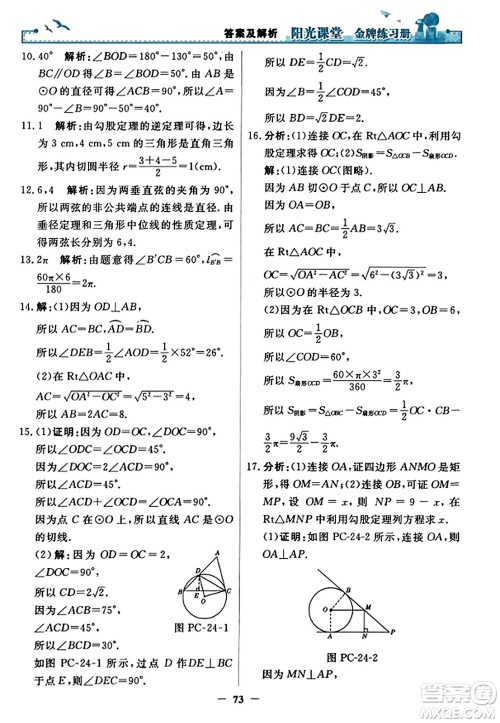 答案及解析 阳光课堂 金牌练习册
10.40° 解析:∠BOD=180°-∠AOD=80°,因为 AB 是 ⊙O 的直径可得∠BOP=90°,
所以
11.1 解析:由勾股定理的逆定理可得,三边长分别
为 3 cm,4 cm,5 cm 的三角形是直角三角
形,其内切圆半径 r=(3+4-5)/2=1(cm).
12.6,4 解析:因为两垂直弦的夹角为90°,
所以两弦的非公共端点的连线是直径.由
垂径定理和三角形中位线的性质定理,可
得两弦长分别为 6,4.
13.2π 解析:由题意得∠B'CB=60°,l=
60π×6/180=2π.
14.解:(1)因为 OD⊥AB,
所以 AC=BC,AD=BD.
所以∠DEB=1/2∠AOD=1/2×52°=26°.
(2)在 Rt△OAC 中,
AC=√(OA²-OC²)=√(5²-3²)=4,
所以 AB=2AC=8.
15.(1)证明:因为 OD=OC,∠DOC=90°,
所以∠ODC=∠OCD=45°.
因为∠DOC=2∠ACD=90°,
所以∠ACD=45°.
所以∠ACD+∠OCD=∠OCA=90°.
因为点 C 在⊙O 上,所以直线 AC 是⊙O
的切线.
(2)解:因为 OD=OC=2,
∠DOC=90°,
所以 CD=2√2.
因为∠ACB=75°,
∠ACD=45°,
所以∠BCD=30°.
图 PC-24-1
如图 PC-24-1 所示,过点 D 作 DE⊥BC
于点 E,则∠DEC=90°.
所以 DE=1/2CD=√2.
因为∠B=45°,
所以 DB=2.
16.分析:(1)连接 OC,在 Rt△AOC 中,利用勾
股定理求得 OA.(2)S阴影=S△OCB-S扇形OCD.
解:(1)连接 OC(图略).
因为 AB 与⊙O 相切于点 C,
所以 OC⊥AB.
在 Rt△AOC 中,
因为 AC=1/2AB=3√3.
所以 OC=√(OA²-AC²)=√(6²-(3√3)²)=3.
所以⊙O 的半径为 3.
(2)在 Rt△OCB 中,
因为 OC=1/2OB,
所以∠B=30°,∠COD=60°.
所以 S扇形OCD=60×π×3²/360=3/2π.
所以 S阴影=S△OCB-S扇形OCD=1/2OC·CB-
3/2π=9√3/2-3/2π.
17.分析:(1)连接 OA,证四边形 ANMO 是矩
形,得 OM=AN;(2)连接 OB,证 OM=
MP,设 OM=x,得 NP=9-x,然后在
Rt△MNP 中利用勾股定理列方程求解.
(1)证明:如图 PC-24-2 所示,连接 OA,
图 PC-24-2
因为 MN⊥AP,
73